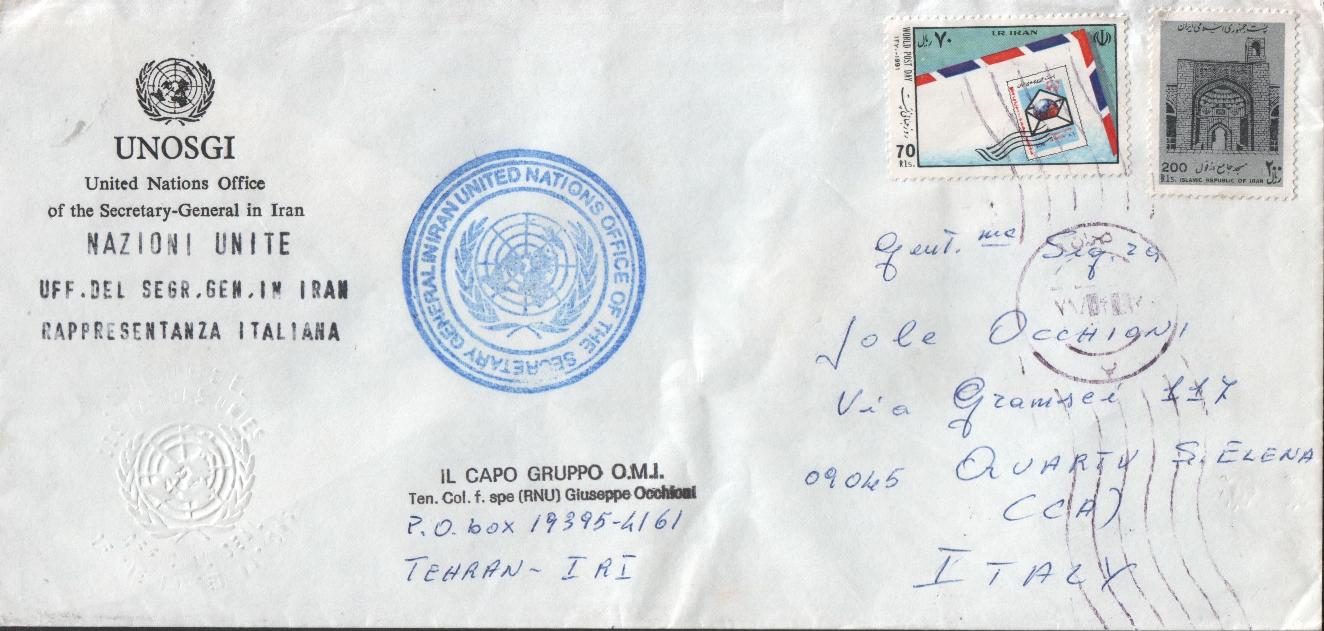 UNOSGI
United Nations Office
of the Secretary-General in Iran
NAZIONI UNITE
UFF.DEL SEGR.GEN.IN IRAN
RAPPRESENTANZA ITALIANA
UNITED NATIONS OFFICE OF THE SECRETARY GENERAL IN IRAN
IL CAPO GRUPPO O.M.I.
Ten. Col. f. spe (RNU) Giuseppe Occhioni
P.O. box 19395-4161
TEHRAN - IRI
I.R. IRAN
۷۰ ریال
WORLD POST DAY
۱۳۷۰-1991
روز جهانی پست
70
Rls.
پست جمهوری اسلامی ایران
مسجد جامع دزفول
200
Rls.
۲۰۰
ریال
ISLAMIC REPUBLIC OF IRAN
Gent.ma Sig.ra
Jole OCCHIONI
Via Gramsci 117
09045 QUARTU S. ELENA
(CA)
ITALY